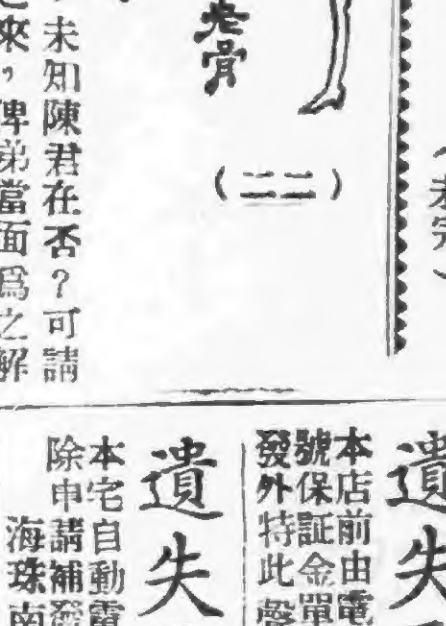 （未完）
老骨
（二二）
未知陳君在否？可請
來，俾弟當面爲之解
遺失
本店前由電
號保証金單
發外特此聲
遺失
本宅自動電
除申請補發
海珠南